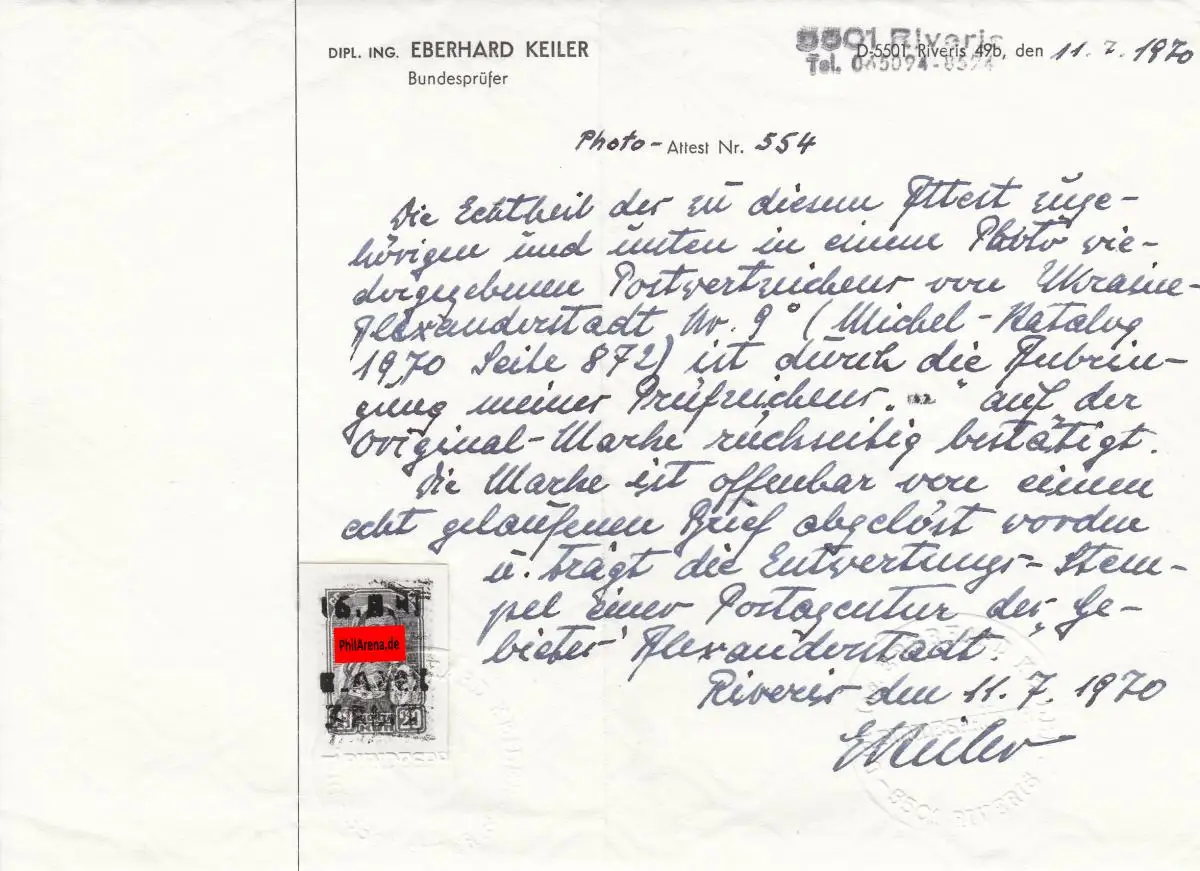 DIPL. ING. EBERHARD KEILER
Bundesprüfer
5501 Riveris
Tel. 065094-8594
D-5501 Riveris 49b, den 11. 7. 1970
Photo - Attest Nr. 554
Die Echtheit des zu diesem Attest zuge-
hörigen und unten in einem Photo wie-
dergegebenen Postwertzeichens von Ukraine-
Alexanderstadt Nr. 9 (Michel-Katalog
1970 Seite 872) ist durch die Anbrin-
gung meines Prüfzeichens „ “ auf der
Original-Marke rückseitig bestätigt.
Die Marke ist offenbar von einem
echt gelaufenen Brief abgelöst worden
u. trägt die Entwertungs-Stem-
pel einer Postagentur des „Ge-
bietes" Alexanderstadt.
Riveris den 11. 7. 1970
EKeiler
PhilArena.de
5501 RIVERIS